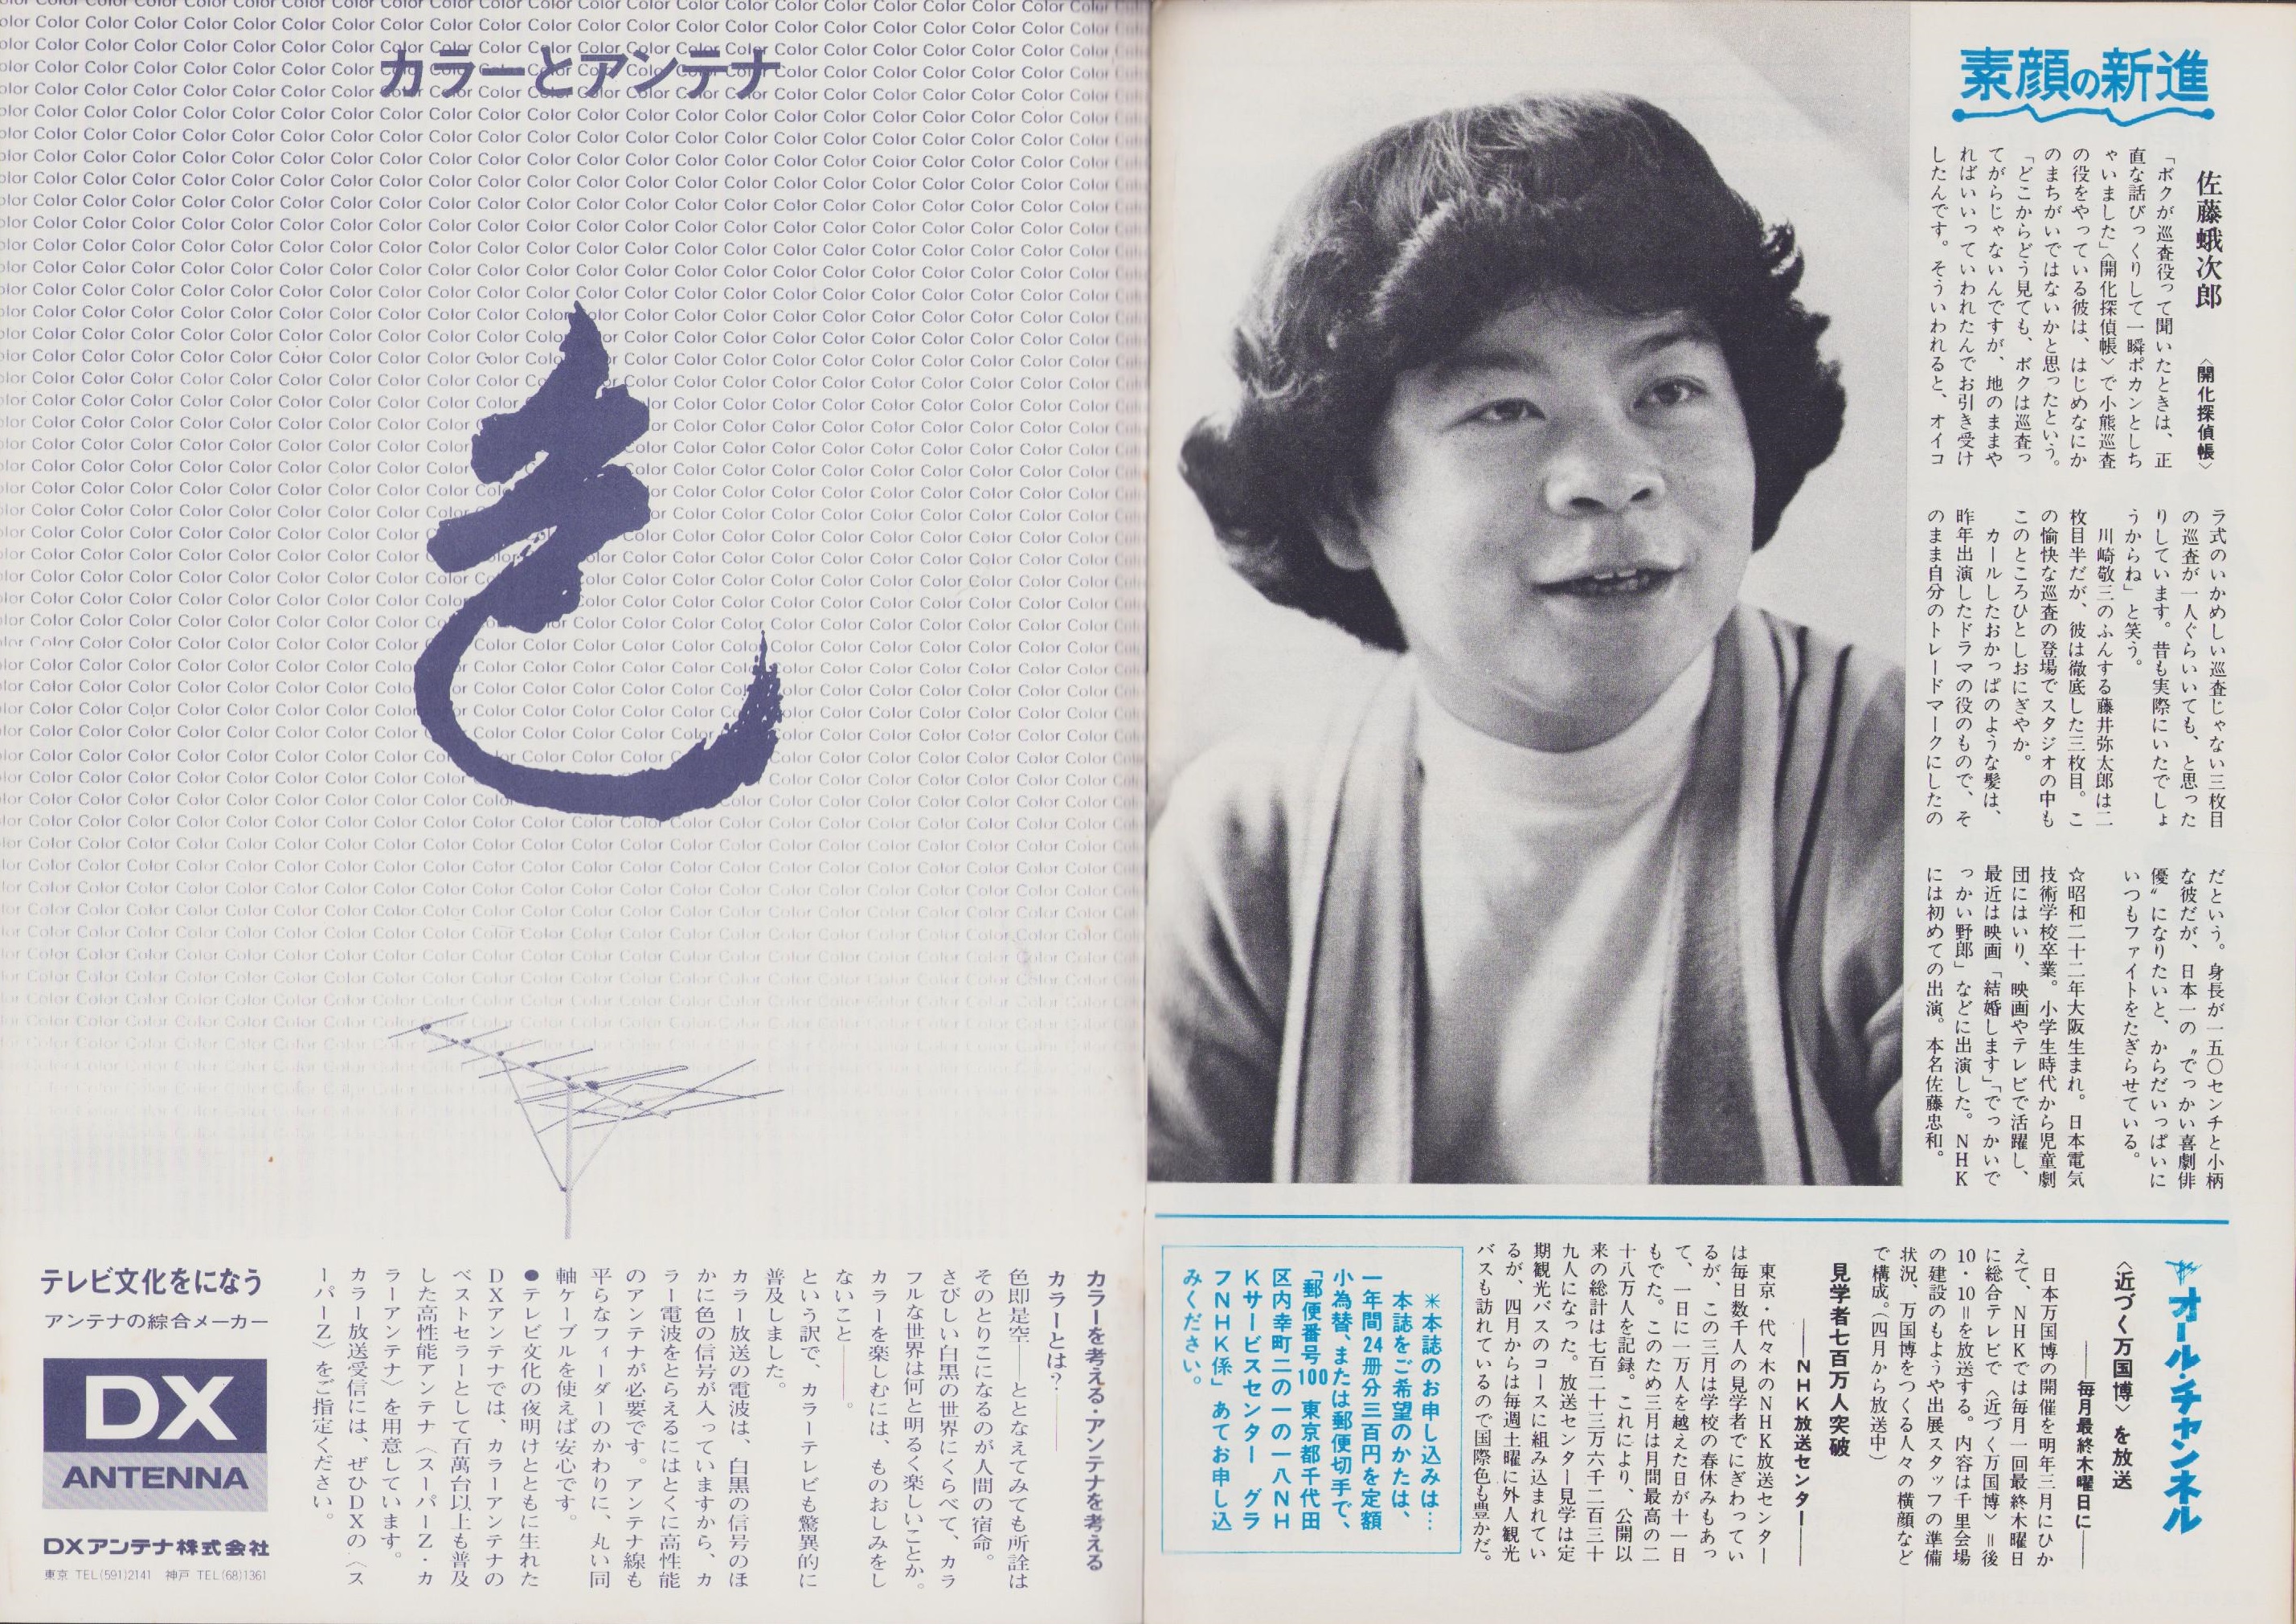 素顔の新進
佐藤蛾次郎 〈開化探偵帳〉
「ボクが巡査役って聞いたときは、正
直な話びっくりして一瞬ポカンとしち
ゃいました」〈開化探偵帳〉で小熊巡査
の役をやっている彼は、はじめなにか
のまちがいではないかと思ったという。
「どこからどう見ても、ボクは巡査っ
てがらじゃないんですが、地のままや
ればいいっていわれたんでお引き受け
したんです。そういわれると、オイコ
ラ式のいかめしい巡査じゃない三枚目
の巡査が一人ぐらいいても、と思った
りしています。昔も実際にいたでしょ
うからね」と笑う。
川崎敬三のふんする藤井弥太郎は二
枚目半だが、彼は徹底した三枚目。こ
の愉快な巡査の登場でスタジオの中も
このところひとしおにぎやか。
カールしたおかっぱのような髪は、
昨年出演したドラマの役のもので、そ
のまま自分のトレードマークにしたの
だという。身長が一五〇センチと小柄
な彼だが、日本一の〝でっかい喜劇俳
優〟になりたいと、からだいっぱいに
いつもファイトをたぎらせている。
☆昭和二十二年大阪生まれ。日本電気
技術学校卒業。小学生時代から児童劇
団にはいり、映画やテレビで活躍し、
最近は映画「結婚します」「でっかいで
っかい野郎」などに出演した。NHK
には初めての出演。本名佐藤忠和。
オール・チャンネル
〈近づく万国博〉を放送
――毎月最終木曜日に――
日本万国博の開催を明年三月にひか
えて、NHKでは毎月一回最終木曜日
に総合テレビで〈近づく万国博〉＝後
10・10＝を放送する。内容は千里会場
の建設のもようや出展スタッフの準備
状況、万国博をつくる人々の横顔など
で構成。（四月から放送中）
見学者七百万人突破
――NHK放送センター――
東京・代々木のNHK放送センター
は毎日数千人の見学者でにぎわってい
るが、この三月は学校の春休みもあっ
て、一日に一万人を越えた日が十一日
もでた。このため三月は月間最高の二
十八万人を記録。これにより、公開以
来の総計は七百二十三万六千二百三十
九人になった。放送センター見学は定
期観光バスのコースに組み込まれてい
るが、四月からは毎週土曜に外人観光
バスも訪れているので国際色も豊かだ。
＊本誌のお申し込みは…
本誌をご希望のかたは、
一年間24冊分三百円を定額
小為替、または郵便切手で、
「郵便番号100 東京都千代田
区内幸町二の一の一八NH
Kサービスセンター グラ
フNHK係」あてお申し込
みください。
カラーとアンテナ
色
カラーを考える・アンテナを考える
カラーとは？――
色即是空――ととなえてみても所詮は
そのとりこになるのが人間の宿命。
さびしい白黒の世界にくらべて、カラ
フルな世界は何と明るく楽しいことか。
カラーを楽しむには、ものおしみをし
ないこと――。
という訳で、カラーテレビも驚異的に
普及しました。
カラー放送の電波は、白黒の信号のほ
かに色の信号が入っていますから、カ
ラー電波をとらえるにはとくに高性能
のアンテナが必要です。アンテナ線も
平らなフィーダーのかわりに、丸い同
軸ケーブルを使えば安心です。
●テレビ文化の夜明けとともに生れた
DXアンテナでは、カラーアンテナの
ベストセラーとして百萬台以上も普及
した高性能アンテナ〈スーパーZ・カ
ラーアンテナ〉を用意しています。
カラー放送受信には、ぜひDXの〈ス
ーパーZ〉をご指定ください。
テレビ文化をになう
アンテナの綜合メーカー
DX
ANTENNA
DXアンテナ株式会社
東京 TEL(591)2141 神戸 TEL(68)1361